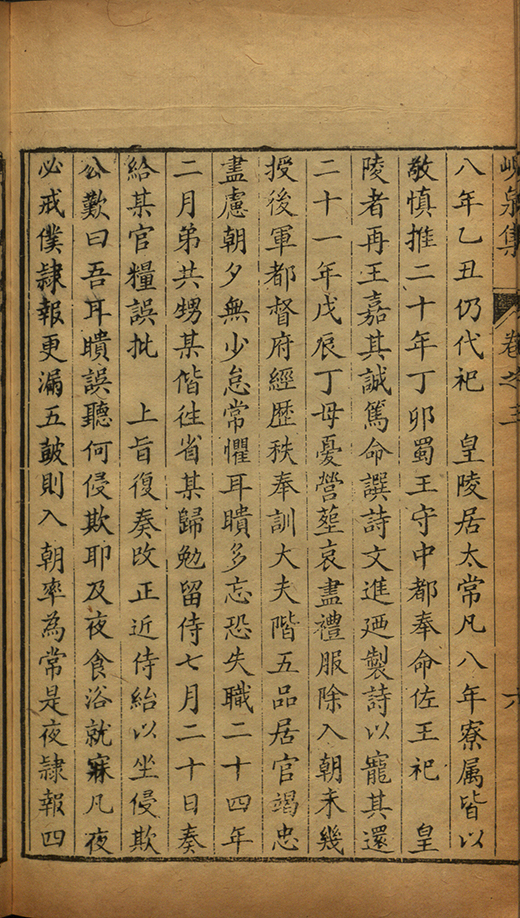 峴泉集 卷之三 六
八年乙丑仍代祀 皇陵居太常凡八年寮属皆以
敬慎推二十年丁卯蜀王守中都奉命佐王祀 皇
陵者再王嘉其誠篤命譔詩文進迺製詩以寵其還
二十一年戊辰丁母憂營塟哀盡禮服除入朝未幾
授後軍都督府經歷秩奉訓大夫階五品居官竭忠
盡慮朝夕無少怠常懼耳聵多忘恐失職二十四年
二月弟共甥某偕往省某歸勉留侍七月二十日奏
給某官糧誤批 上旨復奏改正近侍紿以坐侵欺
公歎曰吾耳聵誤聽何侵欺耶及夜食浴就寐凡夜
必戒僕隷報更漏五皷則入朝率為常是夜隷報四